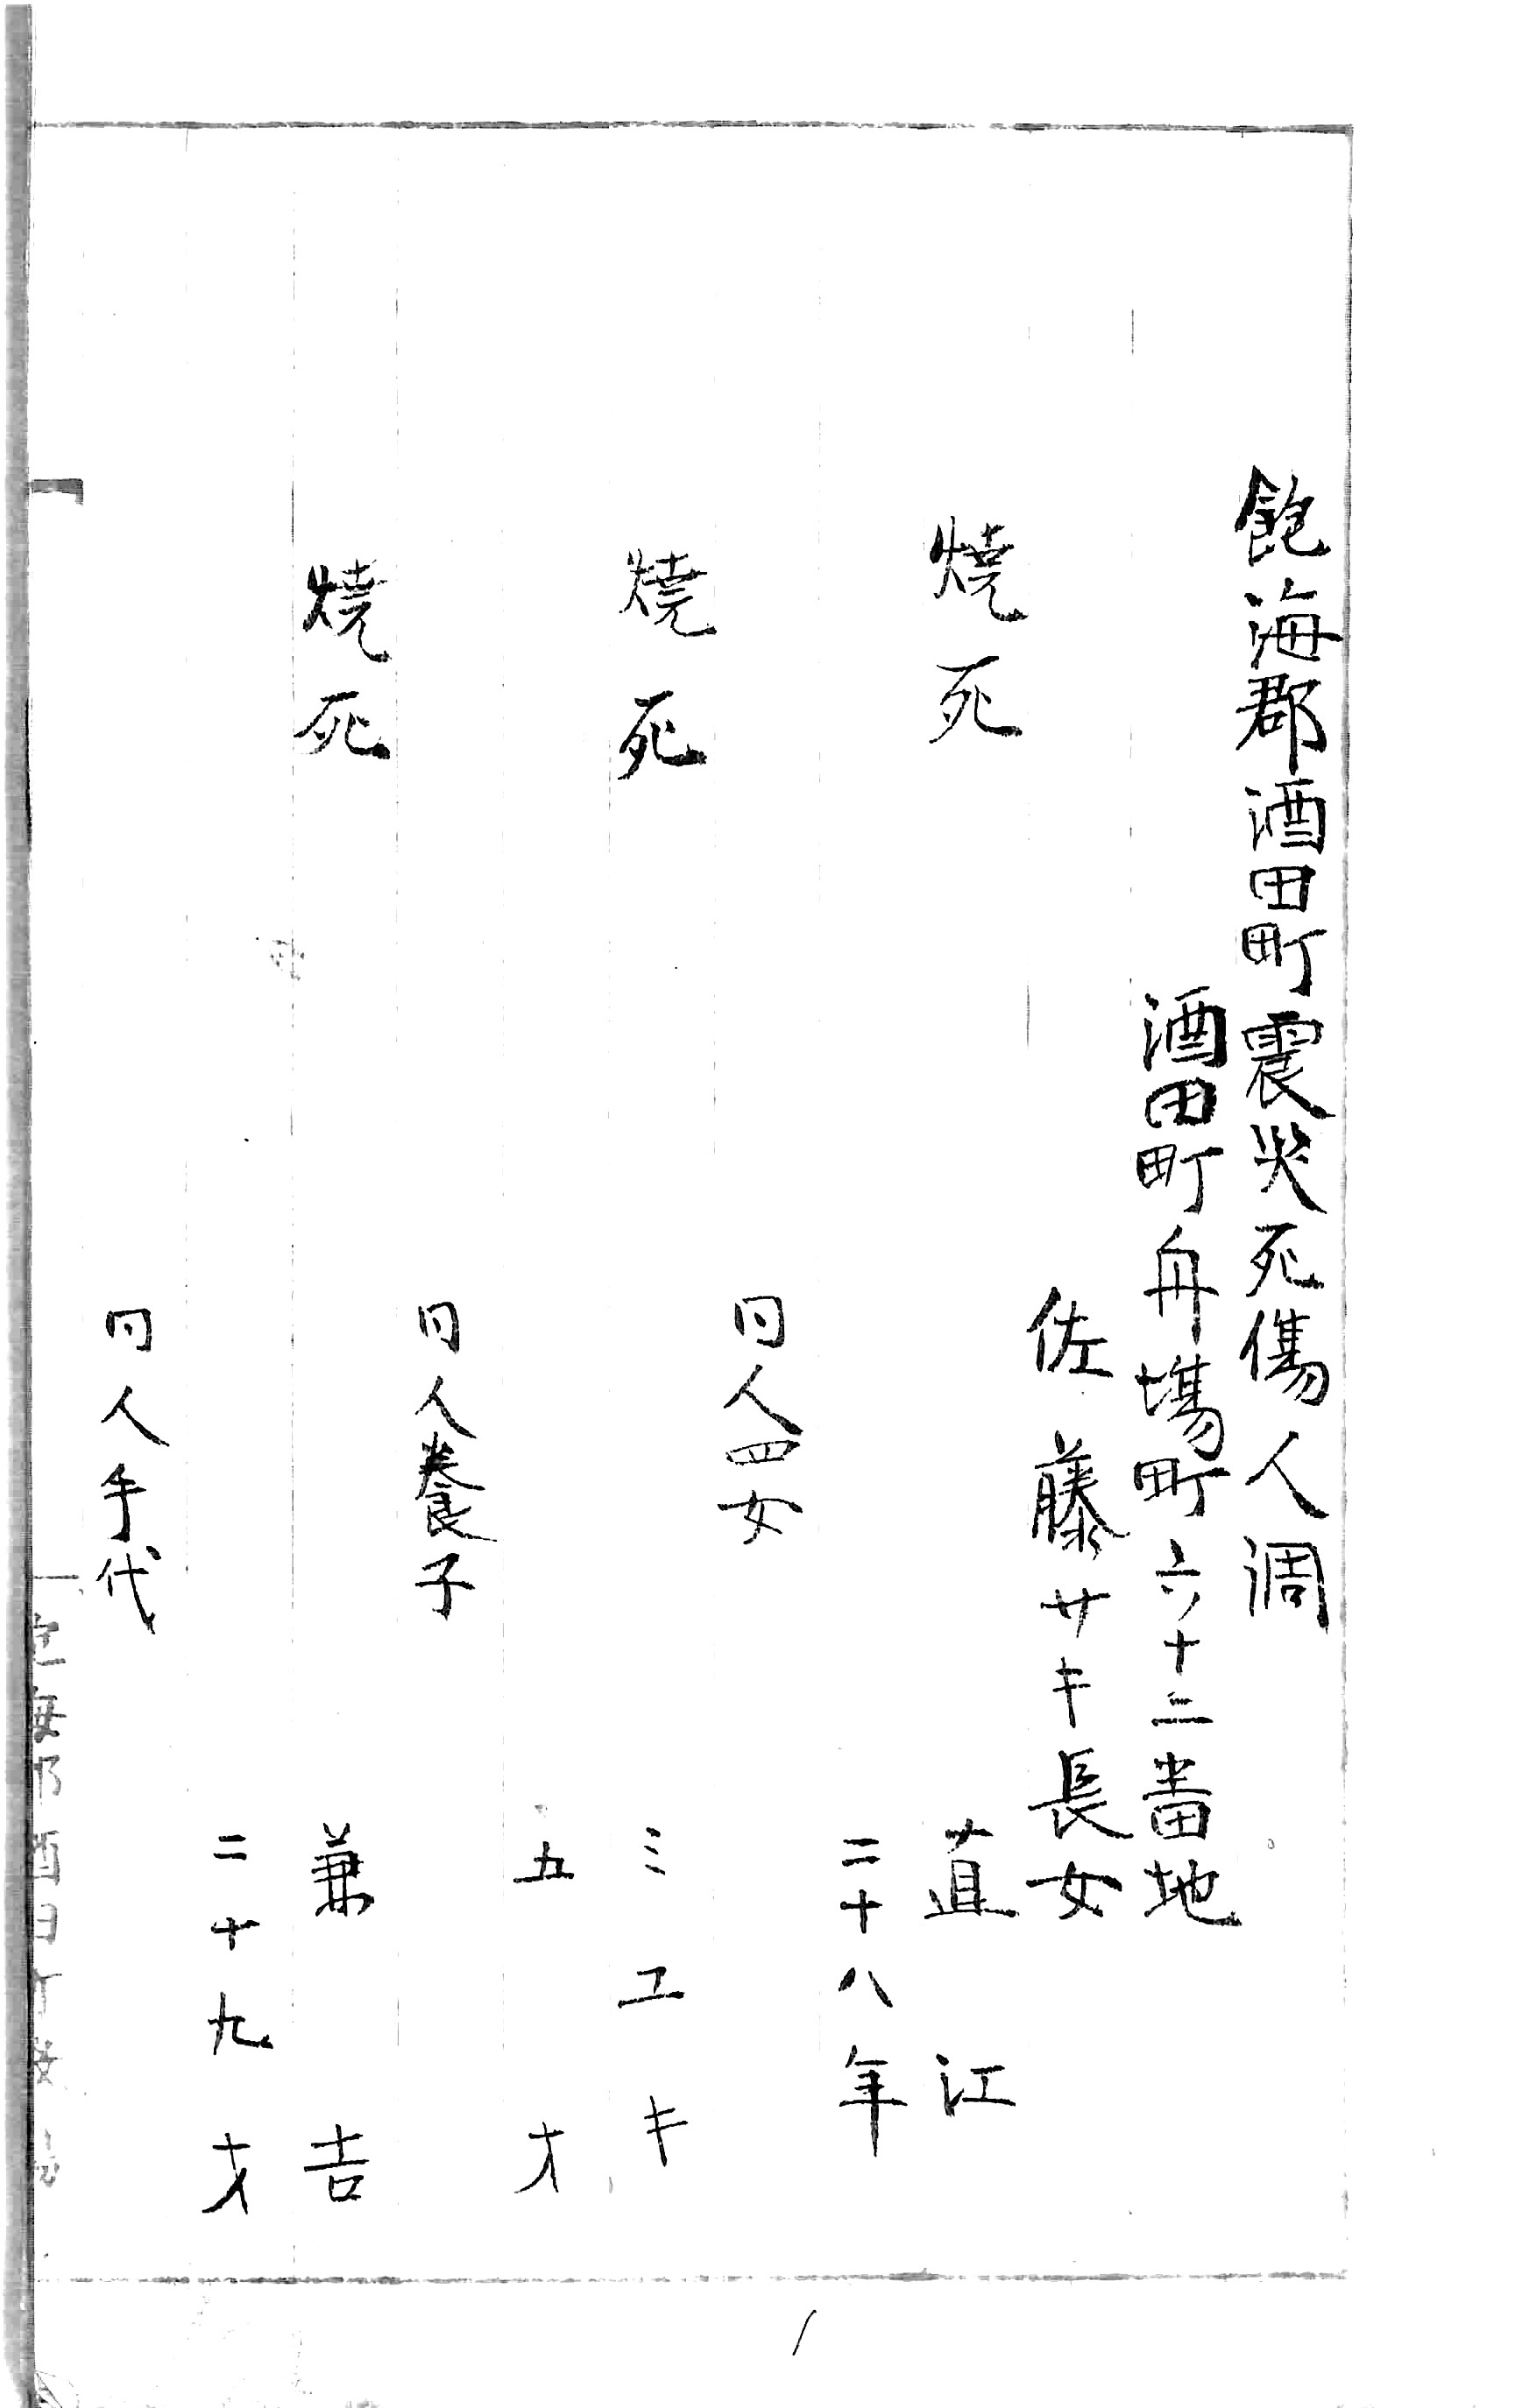 飽海郡酒田町震災死傷人調
酒田町舟場町六十二番地
佐藤サキ長女
焼死 直江
二十八年
同人四女
焼死 ミエキ
五才
同人養子
焼死 兼吉
二十九才
同人手代
1